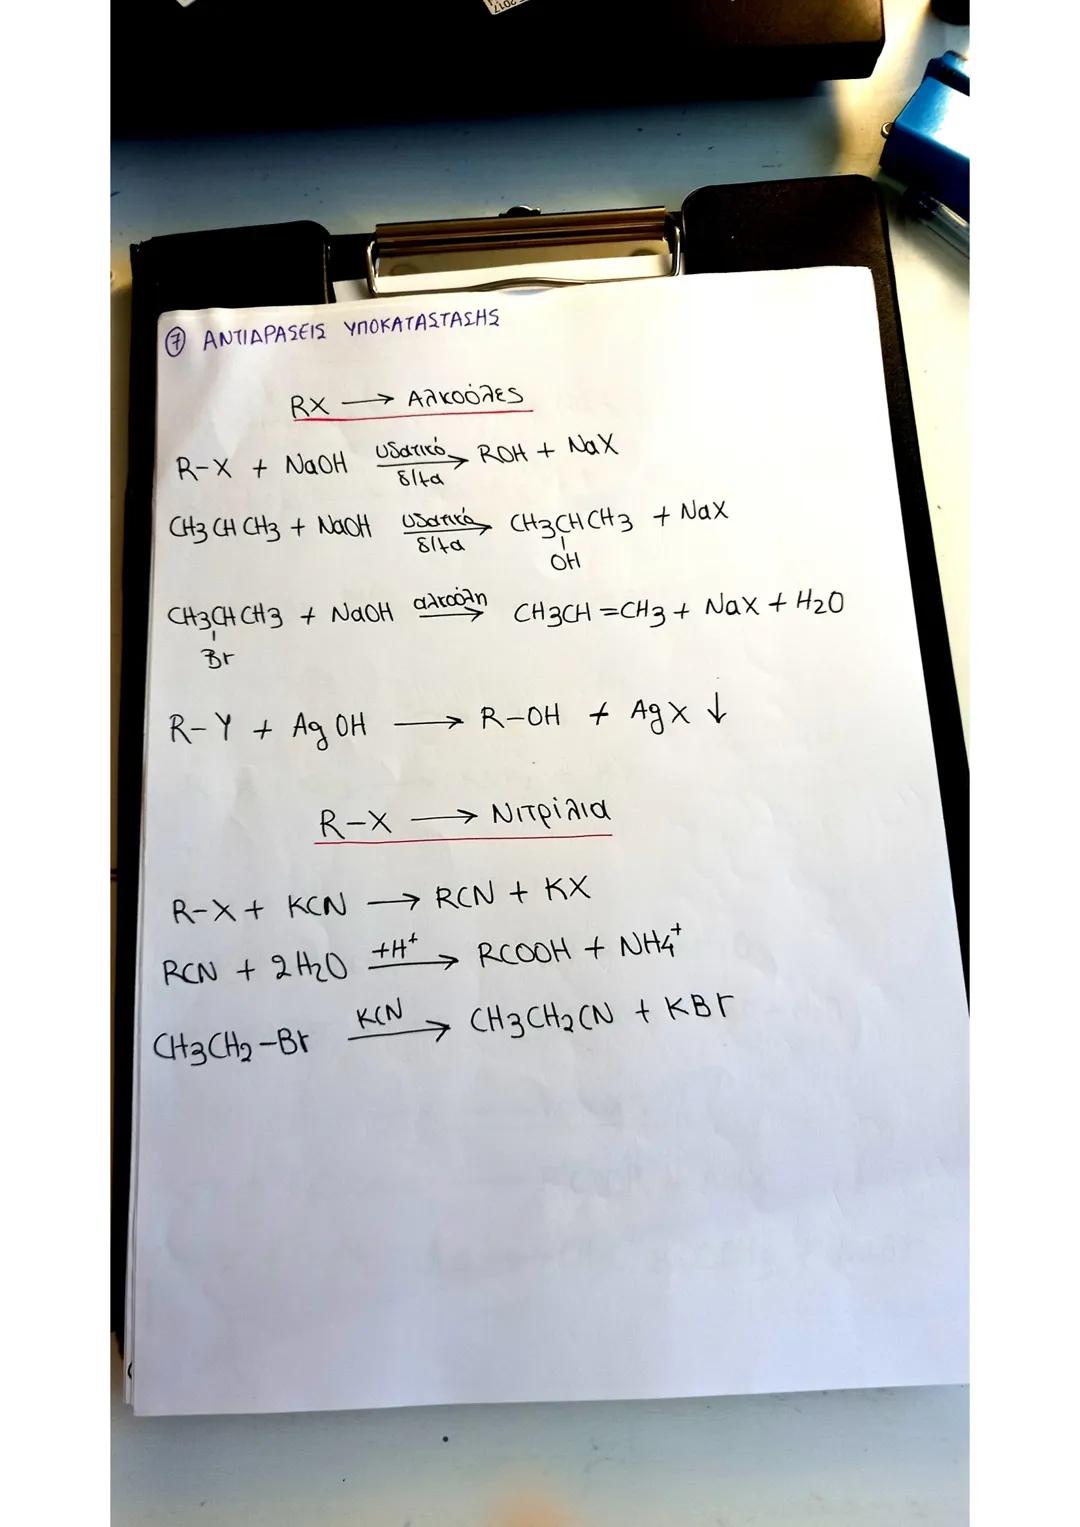 2017
⑦ ΑΝΤΙΔΡΑΣΕΙΣ ΥΠΟΚΑΤΑΣΤΑΣΗΣ
RX → Αλκοόλες
R-X + NaOH υδατικό δ/μα → ROH + NaX
CH3CHCH3 + NaOH υδατικό δ/μα → CH3CHCH3 + NaX
OH
CH3CHCH3 + NaOH αλκοόλη → CH3CH=CH3 + NaX + H2O
Br
R-Y + AgOH → R-OH + AgX ↓
R-X → Νιτρίλια
R-X + KCN → RCN + KX
RCN + 2H2O +H⁺ → RCOOH + NH4⁺
CH3CH2-Br KCN → CH3CH2CN + KBr